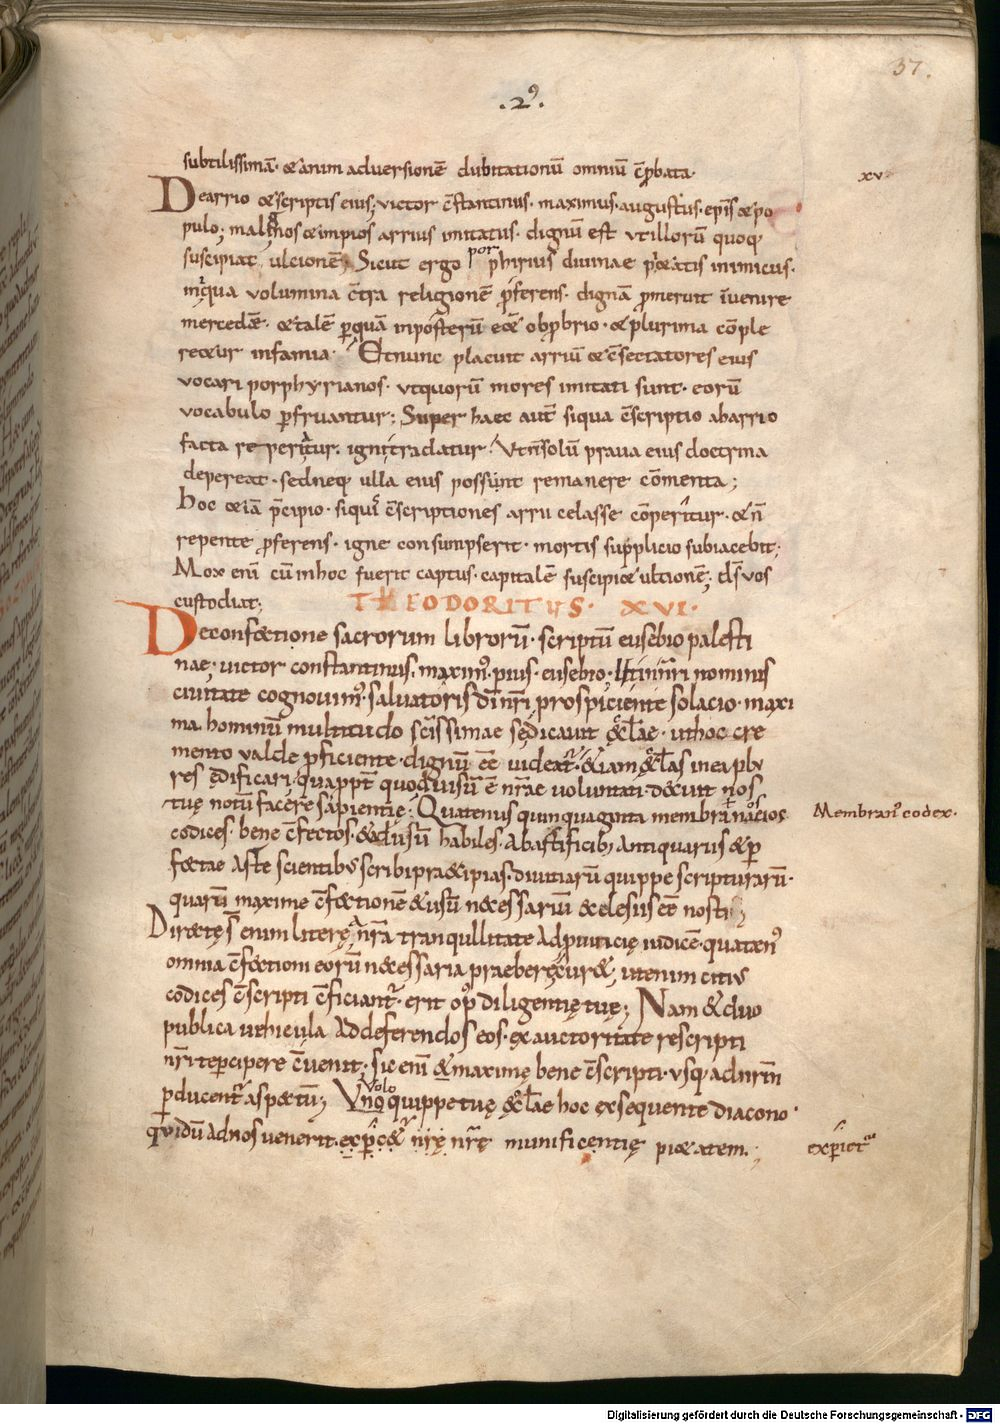 37.
.2⁹.
subtilissimā· & anim adversionē dubitationū omniū cōprobata·
xv
De arrio & scriptis eius; victor cōstantinus· maximus· augustus· ep̄is & po
pulo; malignos & impios arrius imitatus· dignū est ut illorū quoq;
suscipiat ulcionē; Sicut ergo porphirius divinae pi&atis inimicus·
iniqua volumina cōtra religionē proferens· dignā promeruit īvenire
mercedē· & talē per quā in posterū eēt obprobrio· & plurima cōple
r&ur infamia· Et nunc placuit arriū & cōsectatores eius
vocari porphyrianos· ut quorū mores imitati sunt· eorū
vocabulo perfruantur; Super haec aut̄ siqua cōscriptio ab arrio
facta reperitur· igni tradatur· Ut n̄ solū prava eius doctrina
depereat· sed neq; ulla eius possunt remanere cōmenta;
hoc &iā p̄cipio· siquis cōscriptiones arrii celasse cōperitur· & n̄
repente proferens· igne consumpserit· mortis supplicio subiacebit;
Mox enī cū in hoc fuerit captus· capitalē suscipi& ultionē; d̄s vos
custodiat;
THEODORITUS· XVI·
De confectione sacrorum librorū· scriptū eusebio palesti
nae; victor constantinus· maxim⁹· pius· eusebio; In n̄ri nominis
civitate cognovim⁹· salvatoris dī n̄ri prospiciente solacio· maxi
ma hominū multitudo sc̄issimae se dicavit eccl̄ae· ut hoc cre
mento valde proficiente· dignū eē videatr̄· &iam eccl̄as in ea plu
res ędificari· quappt̄ quod visū ē n̄rae voluntati· decuit nos
tuę notū facere sapientię; Quatenus quinquaginta membranacios
Membran⁹ codex.
codices· bene cōfectos· & ad usū habiles· ab artificib; antiquariis & per
fectae arte scientibus scribi praecipias· divinarū quippe scripturarū·
quarū maxime cōfectionē & usū necessariū eclesiis eē nosti;
Directęs̄ enim literę a n̄ra tranquillitate ad provincię iudicē· quaten⁹
omnia cōfectioni eorū necessaria praebere curet, ut enim citius
codices cōscripti cōficiantr̄· erit op⁹ diligentię tuę; Nam & duo
publica vehicula ad deferendos eos· ex auctoritate rescripti
n̄ri te percipere cōvenit· sic enī & maxime bene cōscripti· usq; ad n̄rm̄
perducentr̄ aspectū; Volo
Uno quippe tuę eccl̄ae hoc exsequente diacono·
qui dū ad nos venerit· experi& n̄rę munificentię pi&atem.;
experiet̄